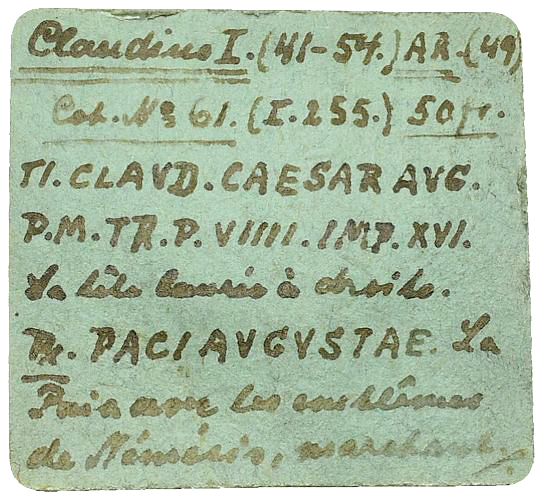 Claudius I. (41-54.) AR. (49)
Coh. Nº 61. (I. 255.) 50 fr.
TI. CLAVD. CAESAR AVG.
P.M. TR. P. VIIII. IMP. XVI.
Sa tête laurée à droite.
Rx. PACI AVGVSTAE. La
Paix avec les emblêmes
de Némésis, marchant.